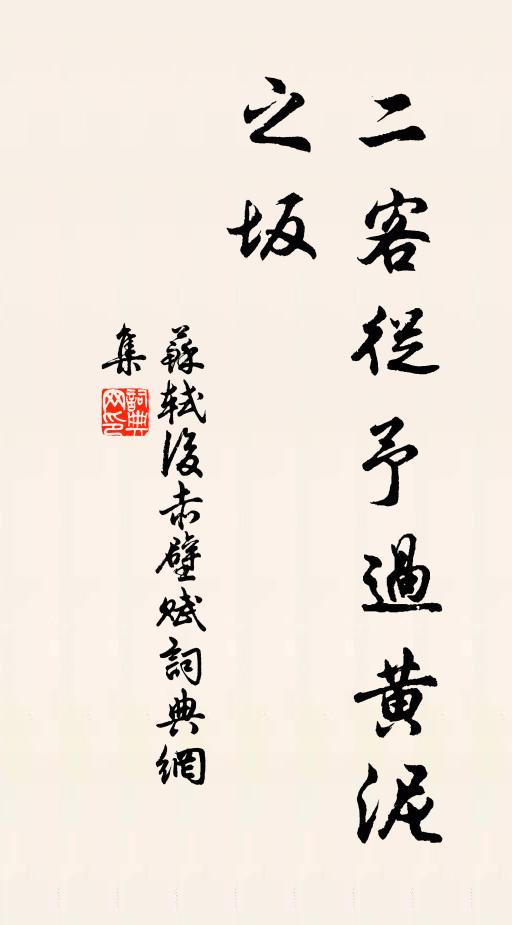 二客從予過黃泥
之坂
蘇軾後赤壁賦詞典網
集
詞典
网印